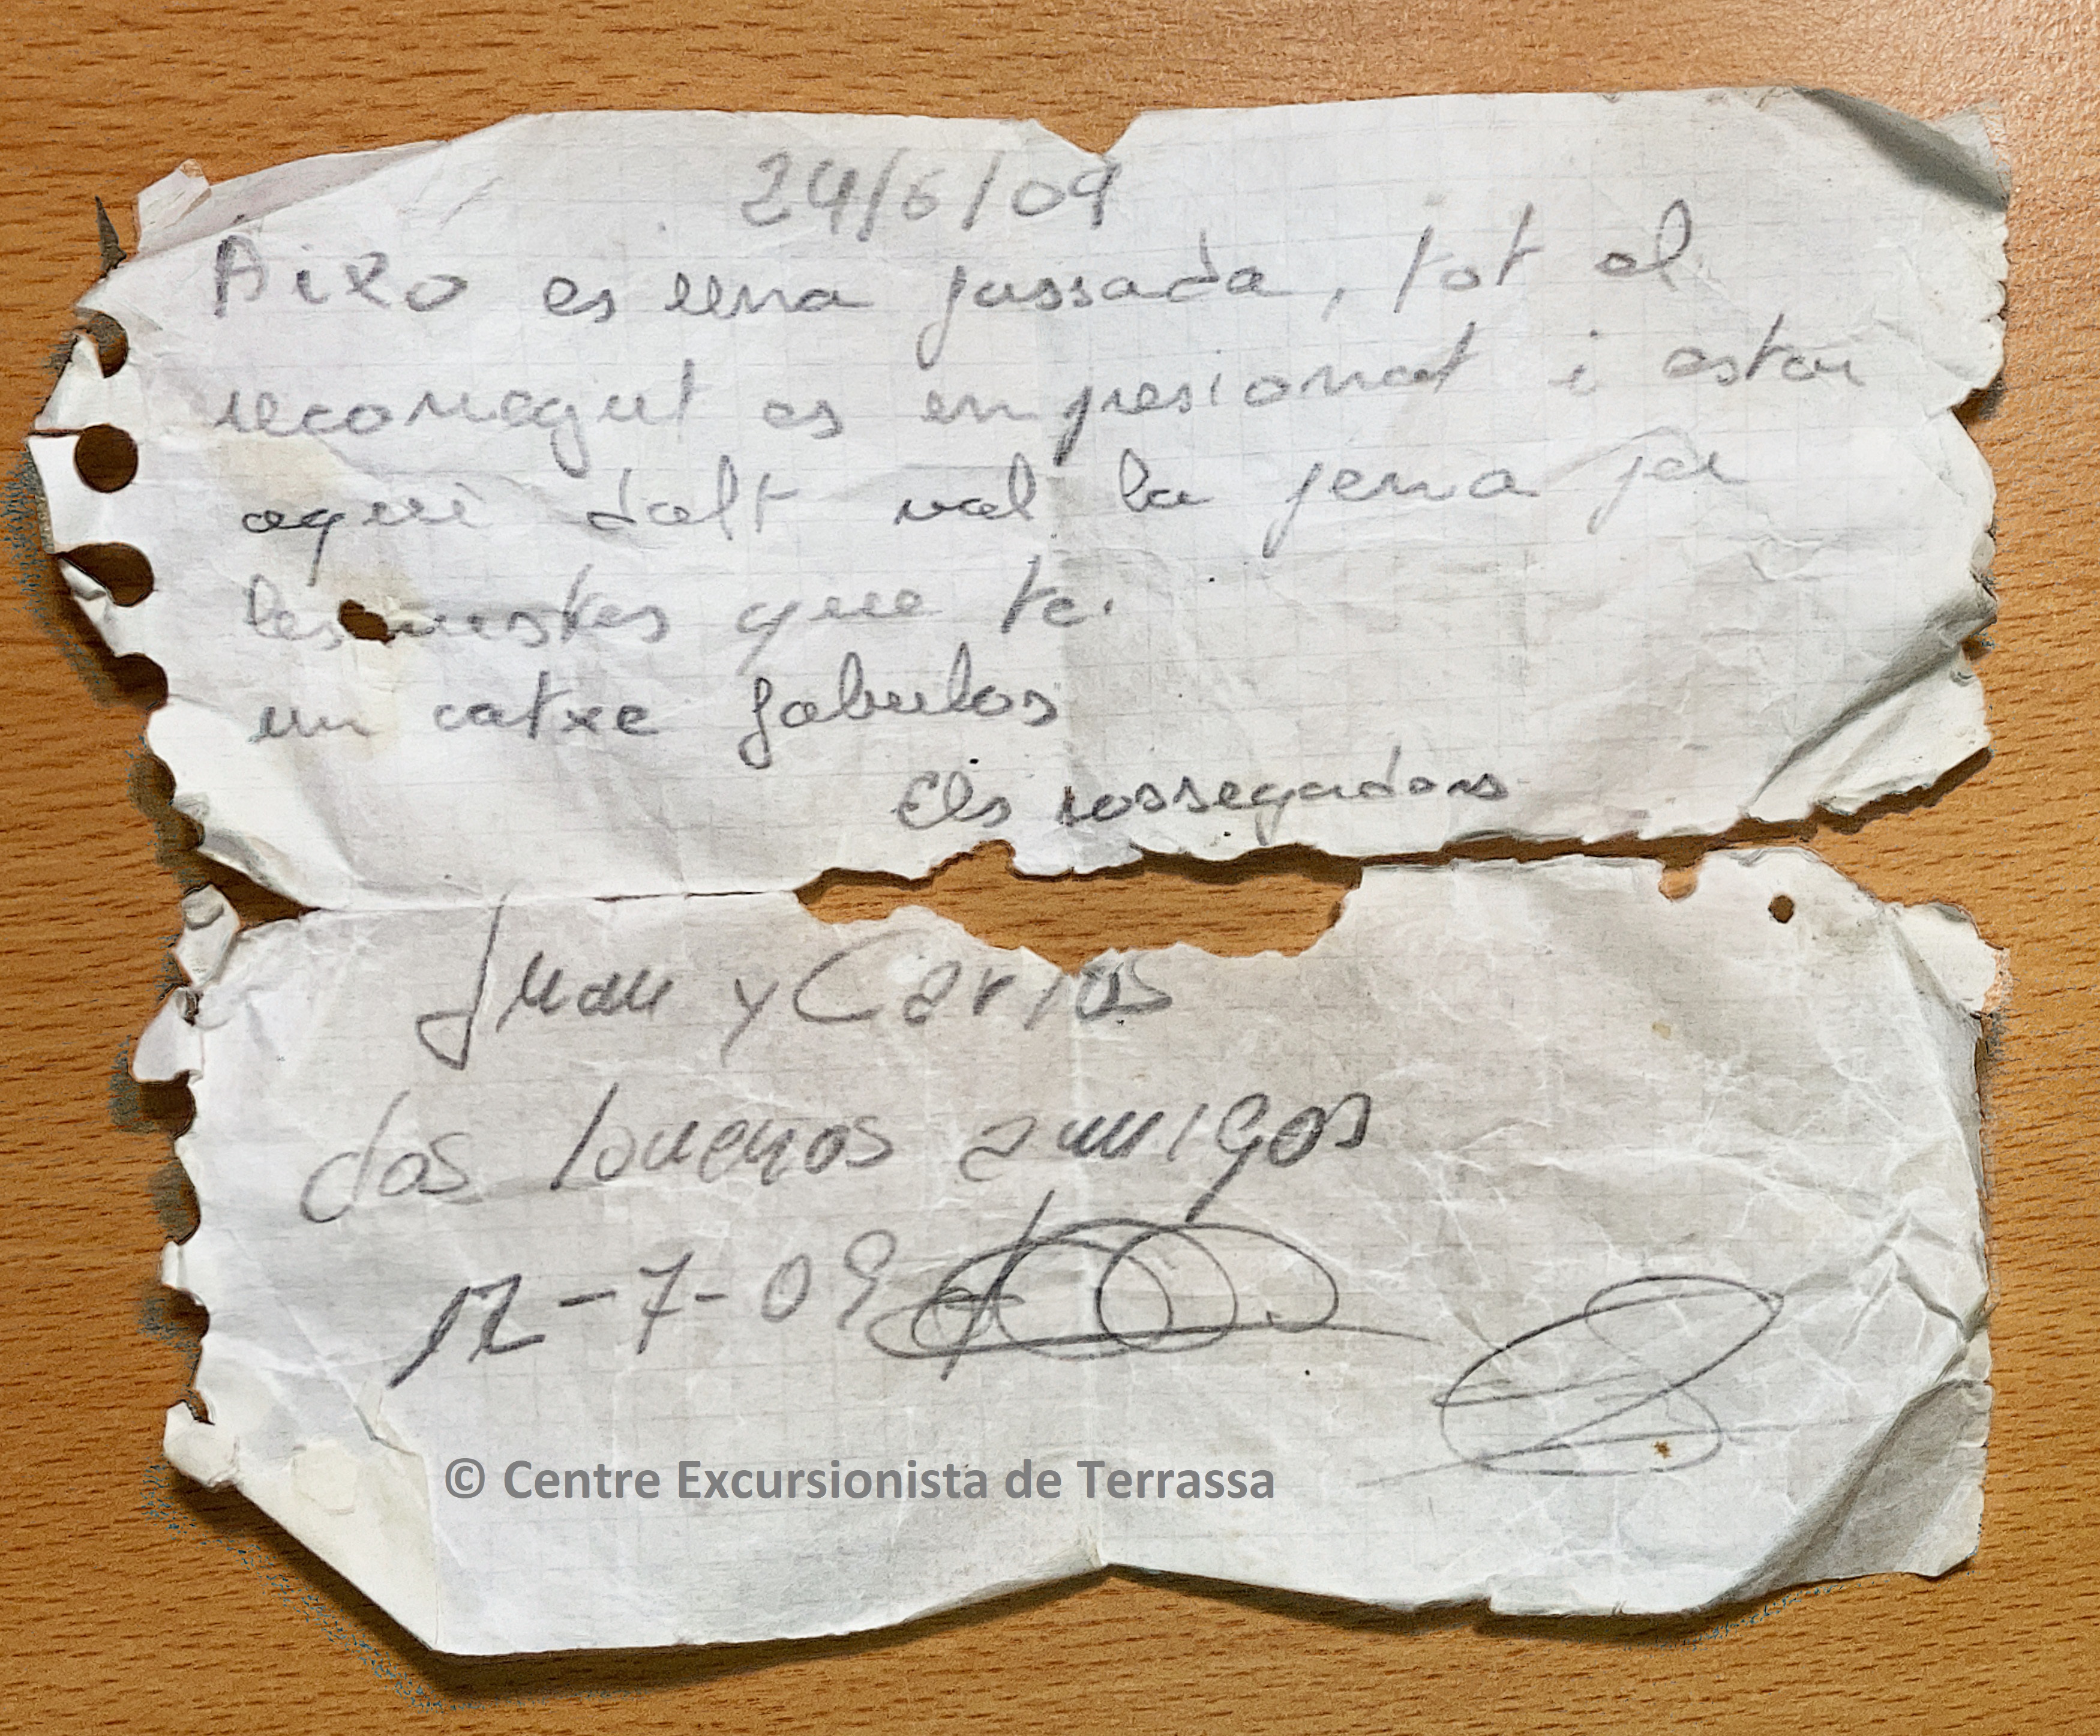 24/6/09
Aixo es una passada, tot el
reconegut es empresionat i estar
aqui dalt val la pena per
les vistes que te.
un catxe fabulos
Els rossegadors
Juan y Carlos
dos buenos amigos
12-7-09
© Centre Excursionista de Terrassa